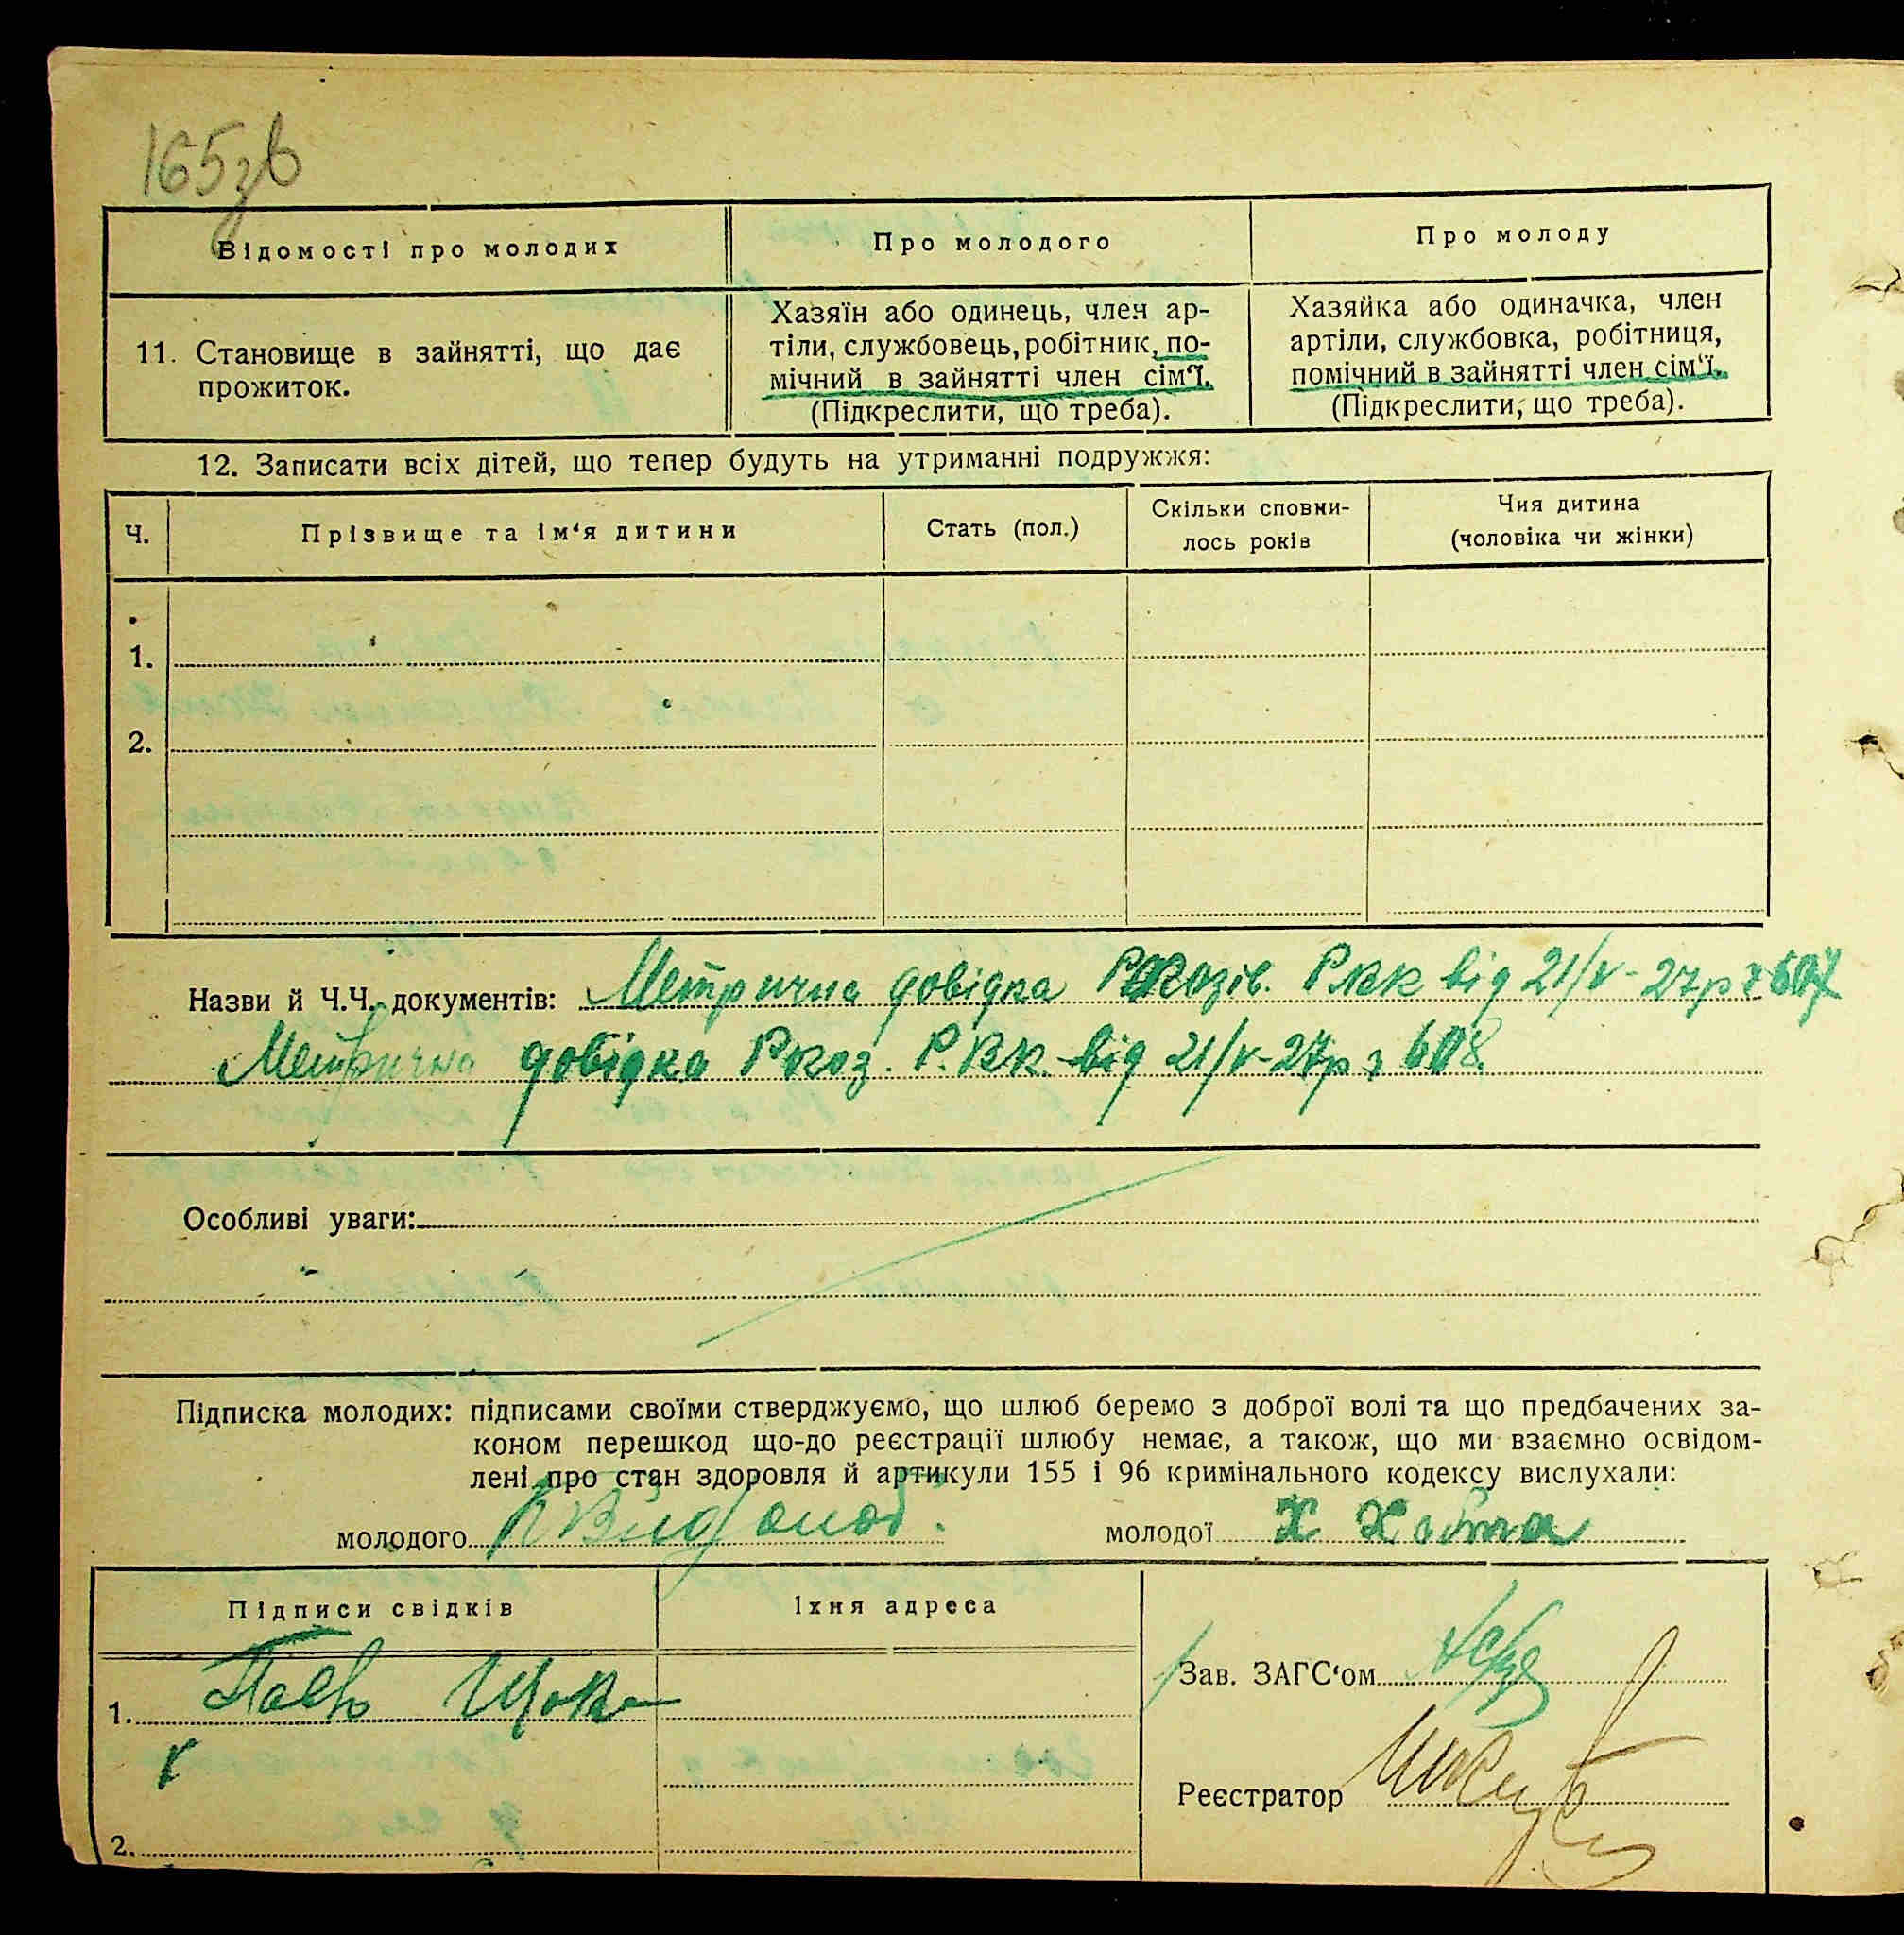 165зв
Відомості про молодих
Про молодого
Про молоду
11. Становище в зайнятті, що дає
прожиток.
Хазяїн або одинець, член ар-
тіли, службовець, робітник, по-
мічний в зайнятті член сім'ї.
(Підкреслити, що треба).
Хазяйка або одиначка, член
артіли, службовка, робітниця,
помічний в зайнятті член сім'ї.
(Підкреслити, що треба).
12. Записати всіх дітей, що тепер будуть на утриманні подружжя:
Ч.
Прізвище та ім'я дитини
Стать (пол.)
Скільки сповни-
лось років
Чия дитина
(чоловіка чи жінки)
1.
2.
Назви й Ч.Ч. документів: Метрична довідка Ркозів. РВК від 21/V-27р з 607
Метрична довідка Ркоз. Р.ВК від 21/V-27р з 608.
Особливі уваги:
Підписка молодих: підписами своїми стверджуємо, що шлюб беремо з доброї волі та що предбачених за-
коном перешкод що-до реєстрації шлюбу немає, а також, що ми взаємно освідом-
лені про стан здоровля й артикули 155 і 96 кримінального кодексу вислухали:
молодого
молодої Х
Підписи свідків
Їхня адреса
1.
2.
Зав. ЗАГС'ом
Реєстратор